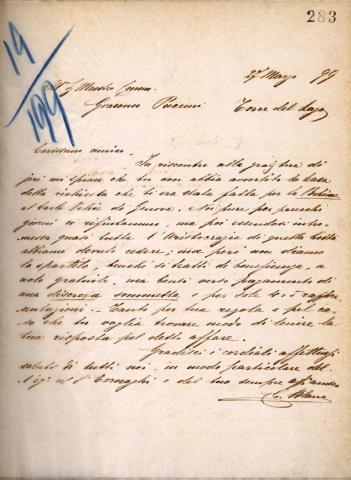 283
19
199
27 Marzo 99
Ill. Sig. Maestro Comm.
Giacomo Puccini Torre del Lago
Carissimo amico.
In riscontro alla grad/ tua di
jeri mi spiace che tu non abbia avvertito la Casa
della richiesta che ti era stata fatta per la Bohème
al Carlo Felice di Genova. Noi pure per parecchi
giorni ci rifiutammo, ma poi essendosi intro-
messa quasi tutta l'Aristocrazia di quella città
abbiamo dovuto cedere; ma però non diamo
lo spartito, benchè si tratti di beneficenza, a
nolo gratuito, ma bensì verso pagamento di
una discreta sommetta e per sole 4 o 5 rappre-
sentazioni. Tanto per tua regola e pel ca-
so che tu voglia trovare modo di tenire la
tua risposta pel detto affare.
Gradisci i cordiali affettuosi
saluti di tutti noi, in modo particolare del
Sig. Tornaghi e del tuo sempre aff. amico
C. Blanc